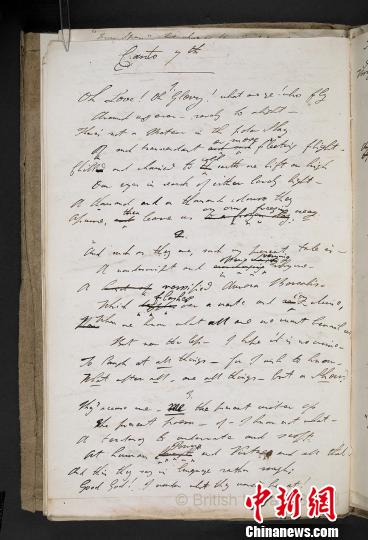 Canto 7th
1
Oh Love! Oh Glory! what are ye! who fly
Around us ever – rarely to alight –
There's not a Meteor in the polar Sky
Of such transcendent and more fleeting flight –
Chill and chained to cold earth we lift on high
Our eyes in search of either lovely light –
A thousand and a thousand colours they
Assume, then leave us on our freezing way
2
And such as they are, such my present tale is –
A nondescript and ever varying rhyme –
A versified Aurora Borealis –
Which flashes o'er a waste and icy clime,
When we know what all are we must bewail us,
But ne'er the less – I hope it is no crime –
To laugh at all things – for I wish to know –
What after all, are all things – but a Show?
3
They accuse me – Me the present writer of
The present poem – of – I know not what –
A tendency to underrate and scoff
At human power and Virtue and all that –
And this they say in language rather rough,
Good God! I wonder what they would be at!
© British
中新网
Chinanews.com